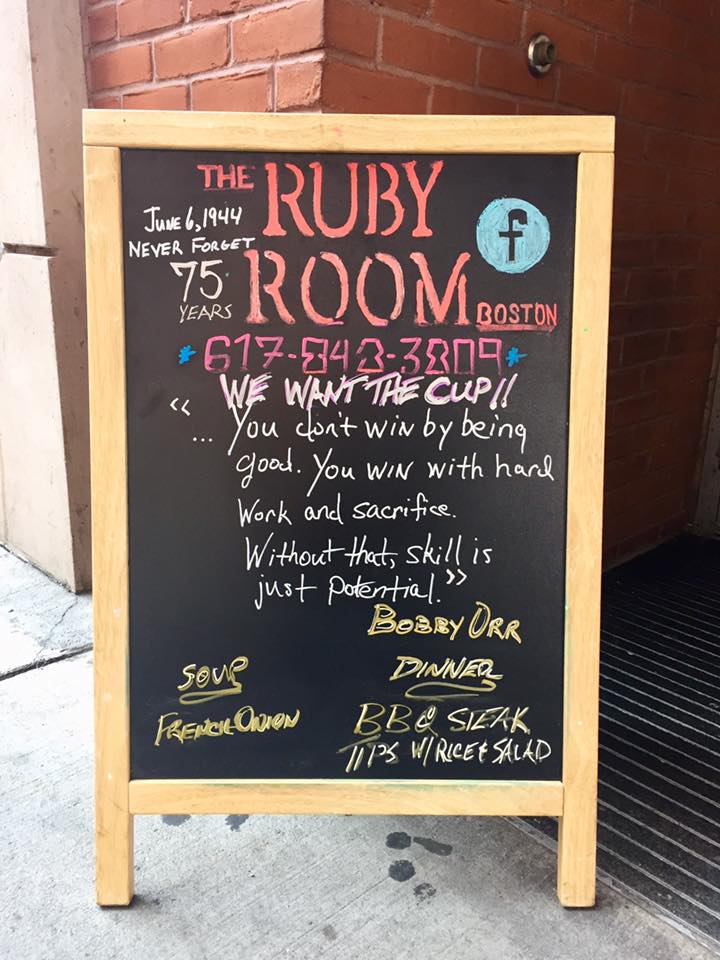 THE RUBY
JUNE 6, 1944
NEVER FORGET
75
YEARS
ROOM BOSTON
f
*617-843-3809*
WE WANT THE CUP!!
“... You don't win by being
good. You WIN with hard
Work and sacrifice.
Without that, skill is
just potential.”
BOBBY ORR
SOUP
FRENCH ONION
DINNER
BBQ STEAK
TIPS W/ RICE & SALAD